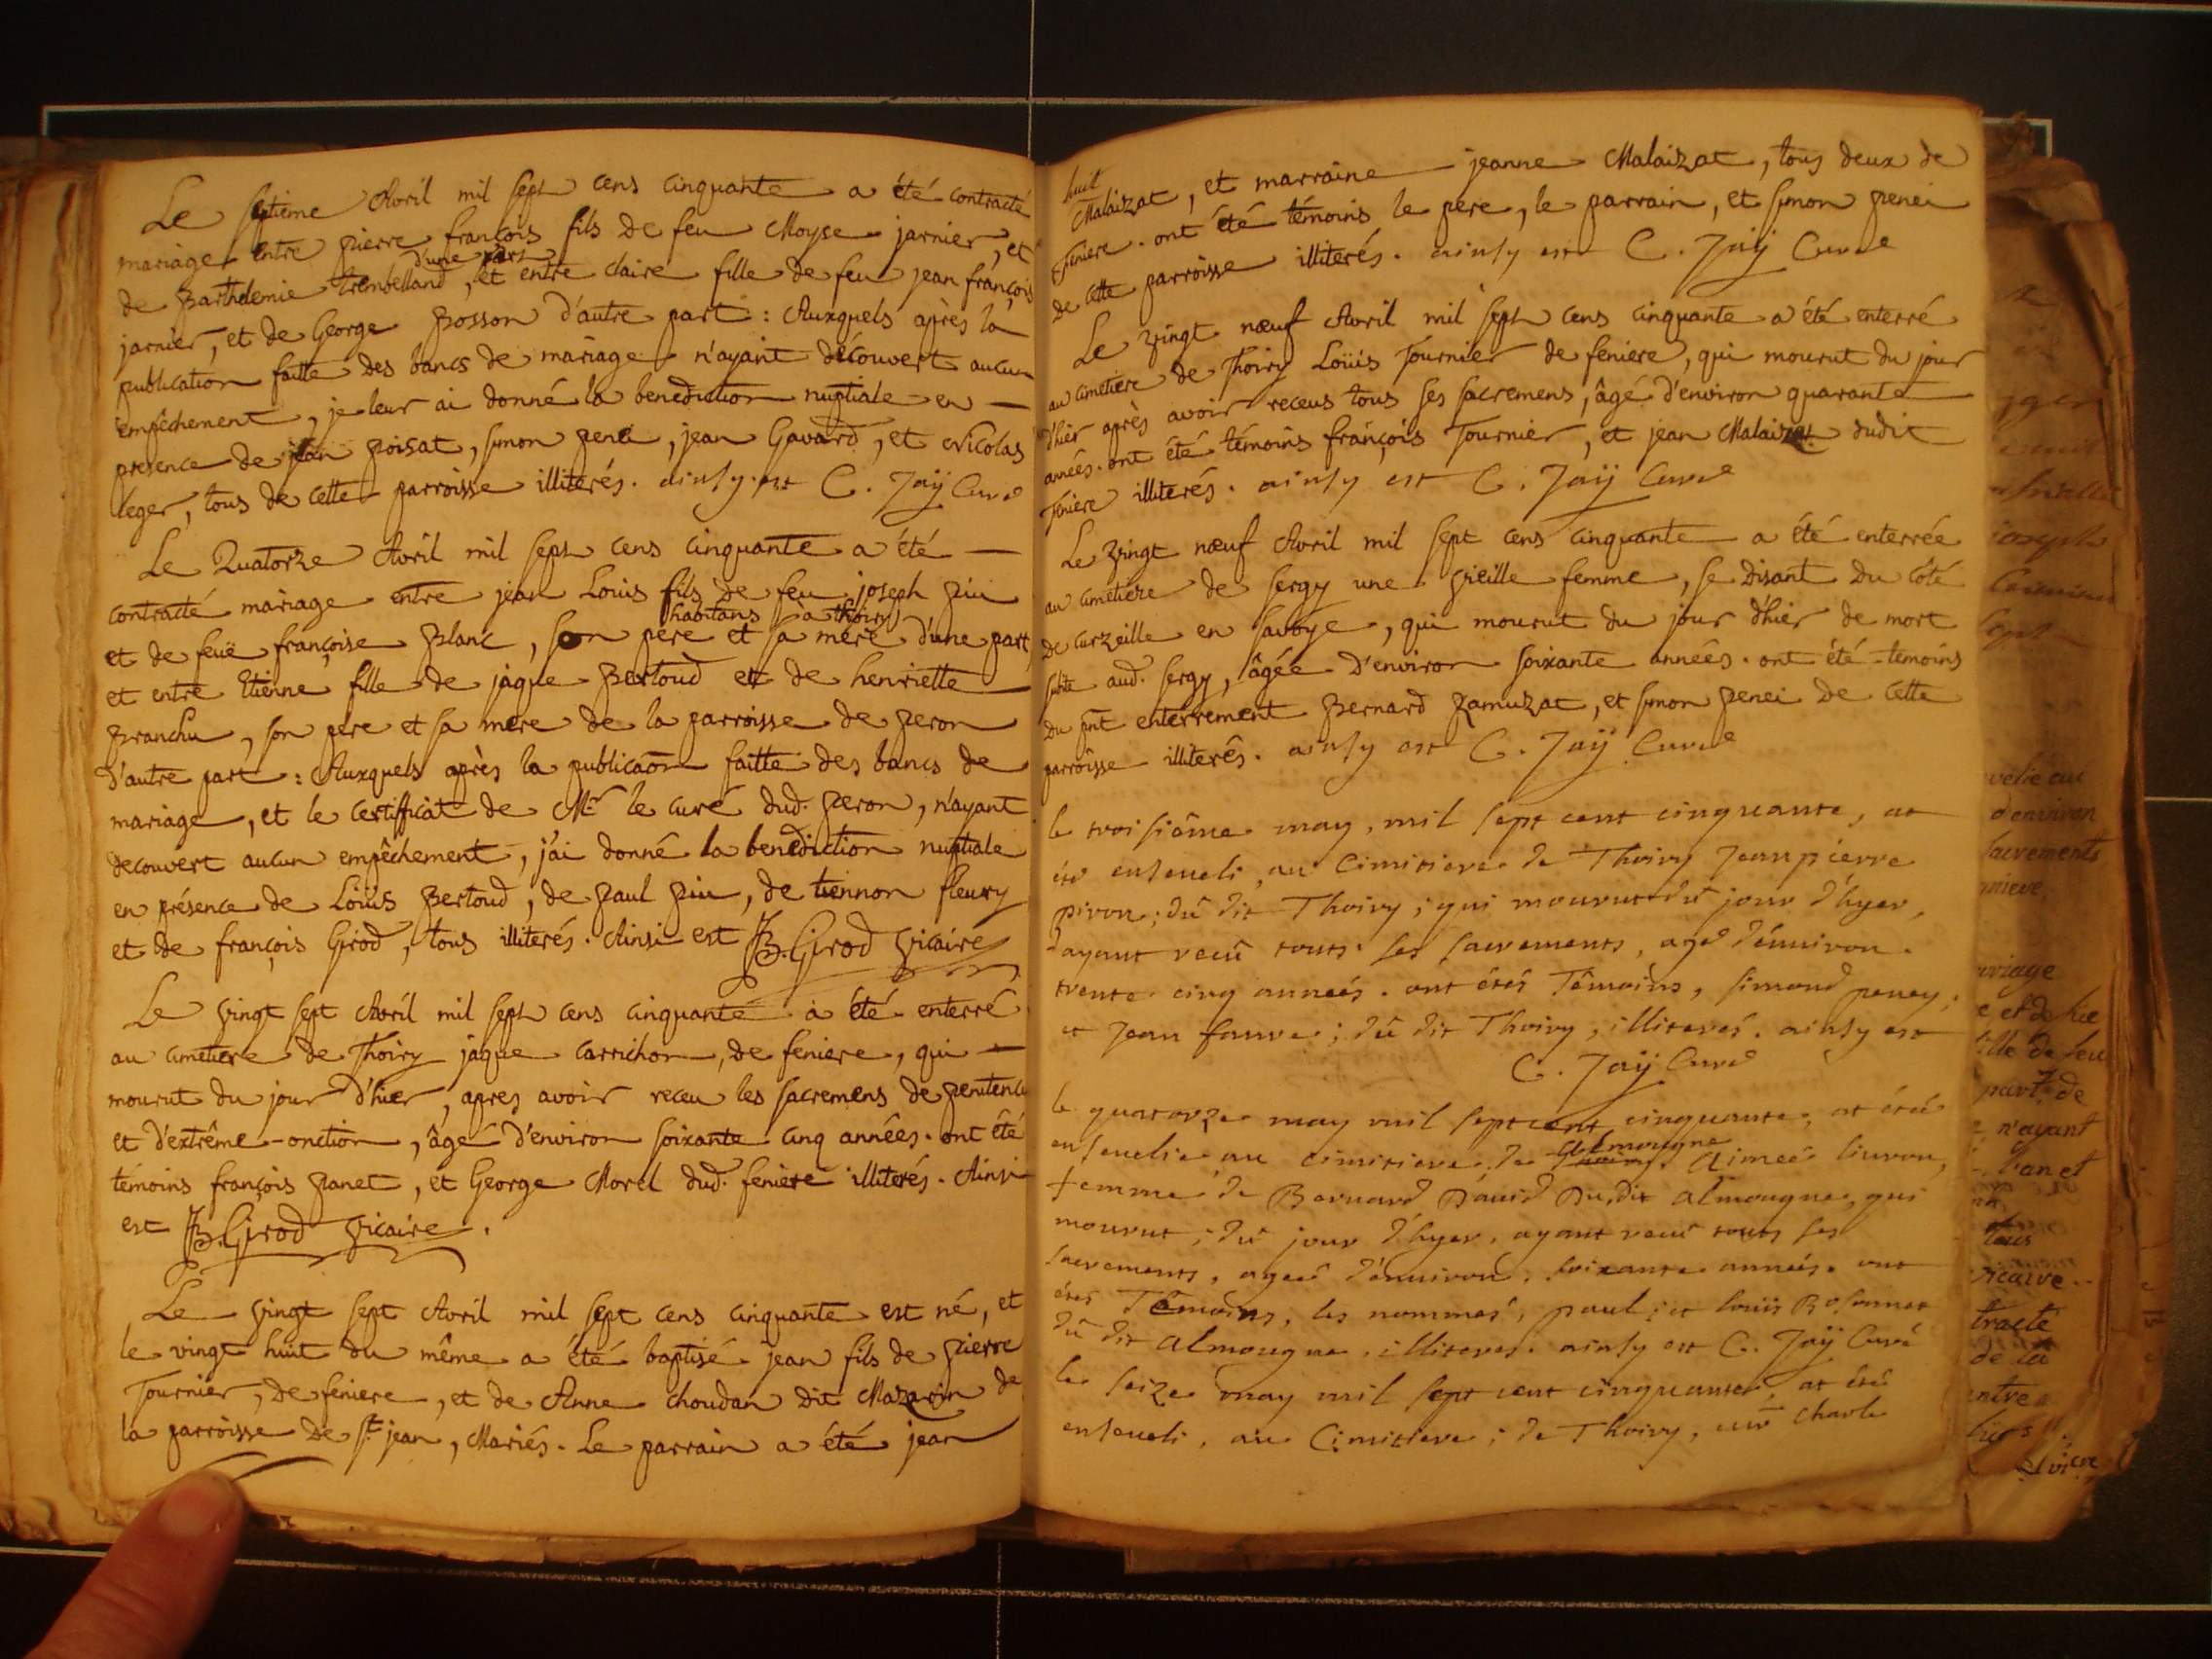 Le septieme Avril mil sept cens cinquante a été contracté
mariage entre pierre françois fils de feu Moyse jarnier, et
de Barthelemie trembelland d'une part, et entre claire fille de feu jean françois
jarnier, et de George Bosson d'autre part : Auxquels après la
publication faitte des bancs de mariage n'ayant découvert aucun
empêchement, je leur ai donné la benediction nuptiale en
presence de jean poisat, simon penei, jean Gavard, et Nicolas
leger, tous de cette parroisse illiterés. ainsy est C. Jaÿ Curé
Le Quatorze Avril mil sept cens cinquante a été
contracté mariage entre jean Louis fils de feu joseph piu
et de feuë françoise Blanc, habitans à thoiry son pere et sa mere d'une part
et entre Etienne fille de jaque Bertoud et de henriette
Branchu, son pere et sa mere de la parroisse de peron
d'autre part : Auxquels après la publicaôn faitte des bancs de
mariage, et le certifficat de Mr le curé dud. peron, n'ayant
decouvert aucun empêchement, j'ai donné la benediction nuptiale
en présence de Loüis Bertoud, de paul piu, de tiennon fleury
et de françois Girod, tous illiterés. Ainsi est JB. Girod vicaire
Le vingt sept Avril mil sept cens cinquante a été enterré
au cimetiere de Thoiry jaque carrichon, de feniere, qui
mourut du jour d'hier, apres avoir receu les sacremens de penitence
et d'extrême-onction, âgé d'environ soixante cinq années. ont été
témoins françois panet, et George Morel dud. feniere illiterés. Ainsi
est JB. Girod vicaire.
Le vingt sept Avril mil sept cens cinquante est né, et
le vingt huit du même a été baptisé jean fils de pierre
Tournier, de feniere, et de Anne choudan dit Mazarin de
la parroisse de St jean, Mariés. Le parrain a été jean
huit
Malaizat, et marraine jeanne Malaizat, tous deux de
feniere. ont été témoins le pere, le parrain, et simon penei
de cette parroisse illiterés. ainsy est C. Jaÿ Curé
Le vingt nœuf Avril mil sept cens cinquante a été enterré
au cimetiere de Thoiry Loüis Tournier de feniere, qui mourut du jour
d'hier après avoir receus tous ses sacremens, âgé d'environ quarante
années. ont été témoins françois Tournier, et jean Malaizat dudit
feniere illiterés. ainsy est C. Jaÿ Curé
Le vingt nœuf Avril mil sept cens cinquante a été enterrée
au cimetiere de sergy une vieille femme, se disant du côté
de curzeille en savoye, qui mourut du jour d'hier de mort
subite aud. sergy, âgée d'environ soixante années. ont été temoins
du pnt enterrement Bernard Ramuzat, et simon penei de cette
parroisse illiterés. ainsy est C. Jaÿ Curé
le troisiême may, mil sept cent cinquante, at
été enseueli, au Cimitiere de Thoiry Jean pierre
piron; dû dit Thoiry; qui mourut dû jour d'hyer,
ayant recû touts les sacrements, agé d'énuiron
trente cinq années. ont étés Têmoins, simond peney,
et Jean faure; dû dit Thoiry, illiterés. ainsy est
C. Jaÿ Curé
le quatorze may mil sept cent cinquante, at étéé
enseuelie au cimitiere de Almougne Aimeé liuron,
femme de Bernard Dauid Du dit Almougne, qui
mourut, dû jour d'hyer, ayant recû touts ses
sacrements, ageé d'énuiron, soixante années. ont
étés Têmoins, les nommés, paul, et louïs Rosonnet
dû dit Almougne, illiterés. ainsy est C. Jaÿ Curé
le seize may mil sept cent cinquante, at été
enseueli, au Cimitiere; de Thoiry, un charle